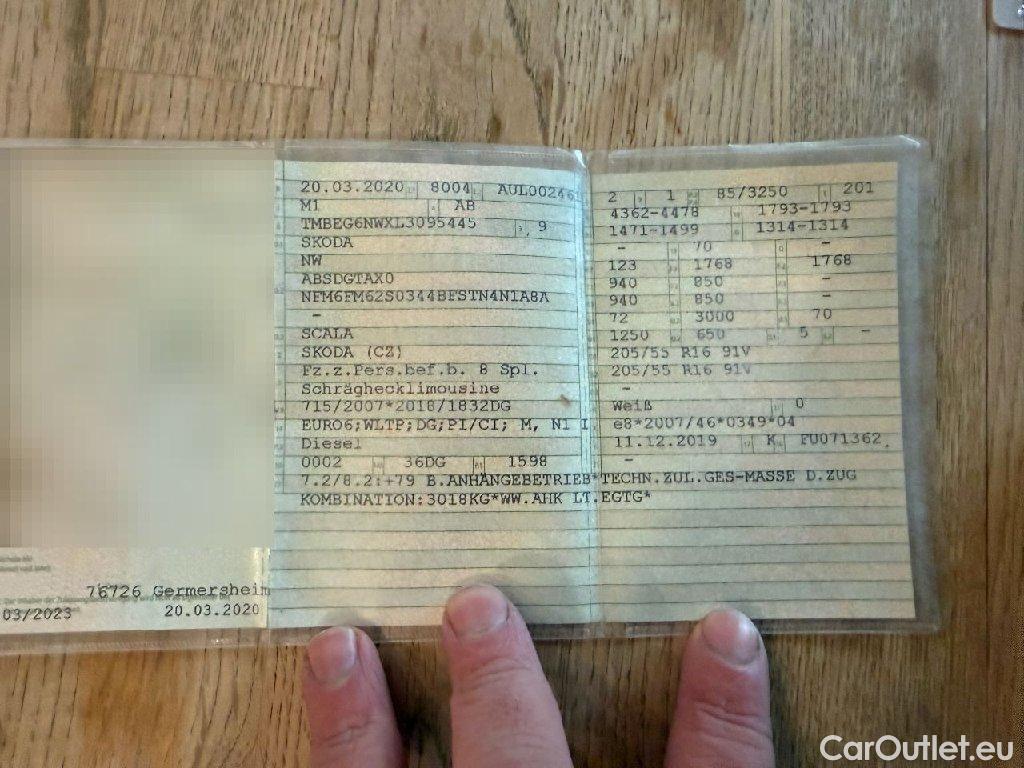 20.03.2020 8004 AUL00246
M1 AB
TMBEG6NWXL3095445 9
SKODA
NW
ABSDGTAX0
NFM6FM62S0344BFSTN4N1A8A
–
SCALA
SKODA (CZ)
Fz.z.Pers.bef.b. 8 Spl.
Schräghecklimousine
715/2007*2018/1832DG
EURO6;WLTP;DG;PI/CI; M, N1 I
Diesel
0002 36DG 1598
7.2/8.2:+79 B.ANHÄNGEBETRIEB*TECHN.ZUL.GES-MASSE D.ZUG
KOMBINATION:3018KG*WW.AHK LT.EGTG*
2 1 85/3250 201
4362-4478 1793-1793
1471-1499 1314-1314
– 70 –
123 1768 1768
940 850 –
940 850 –
72 3000 70
1250 650 5 –
205/55 R16 91V
205/55 R16 91V
–
Weiß 0
e8*2007/46*0349*04
11.12.2019 K FU071362
–
76726 Germersheim
03/2023 20.03.2020
CarOutlet.eu